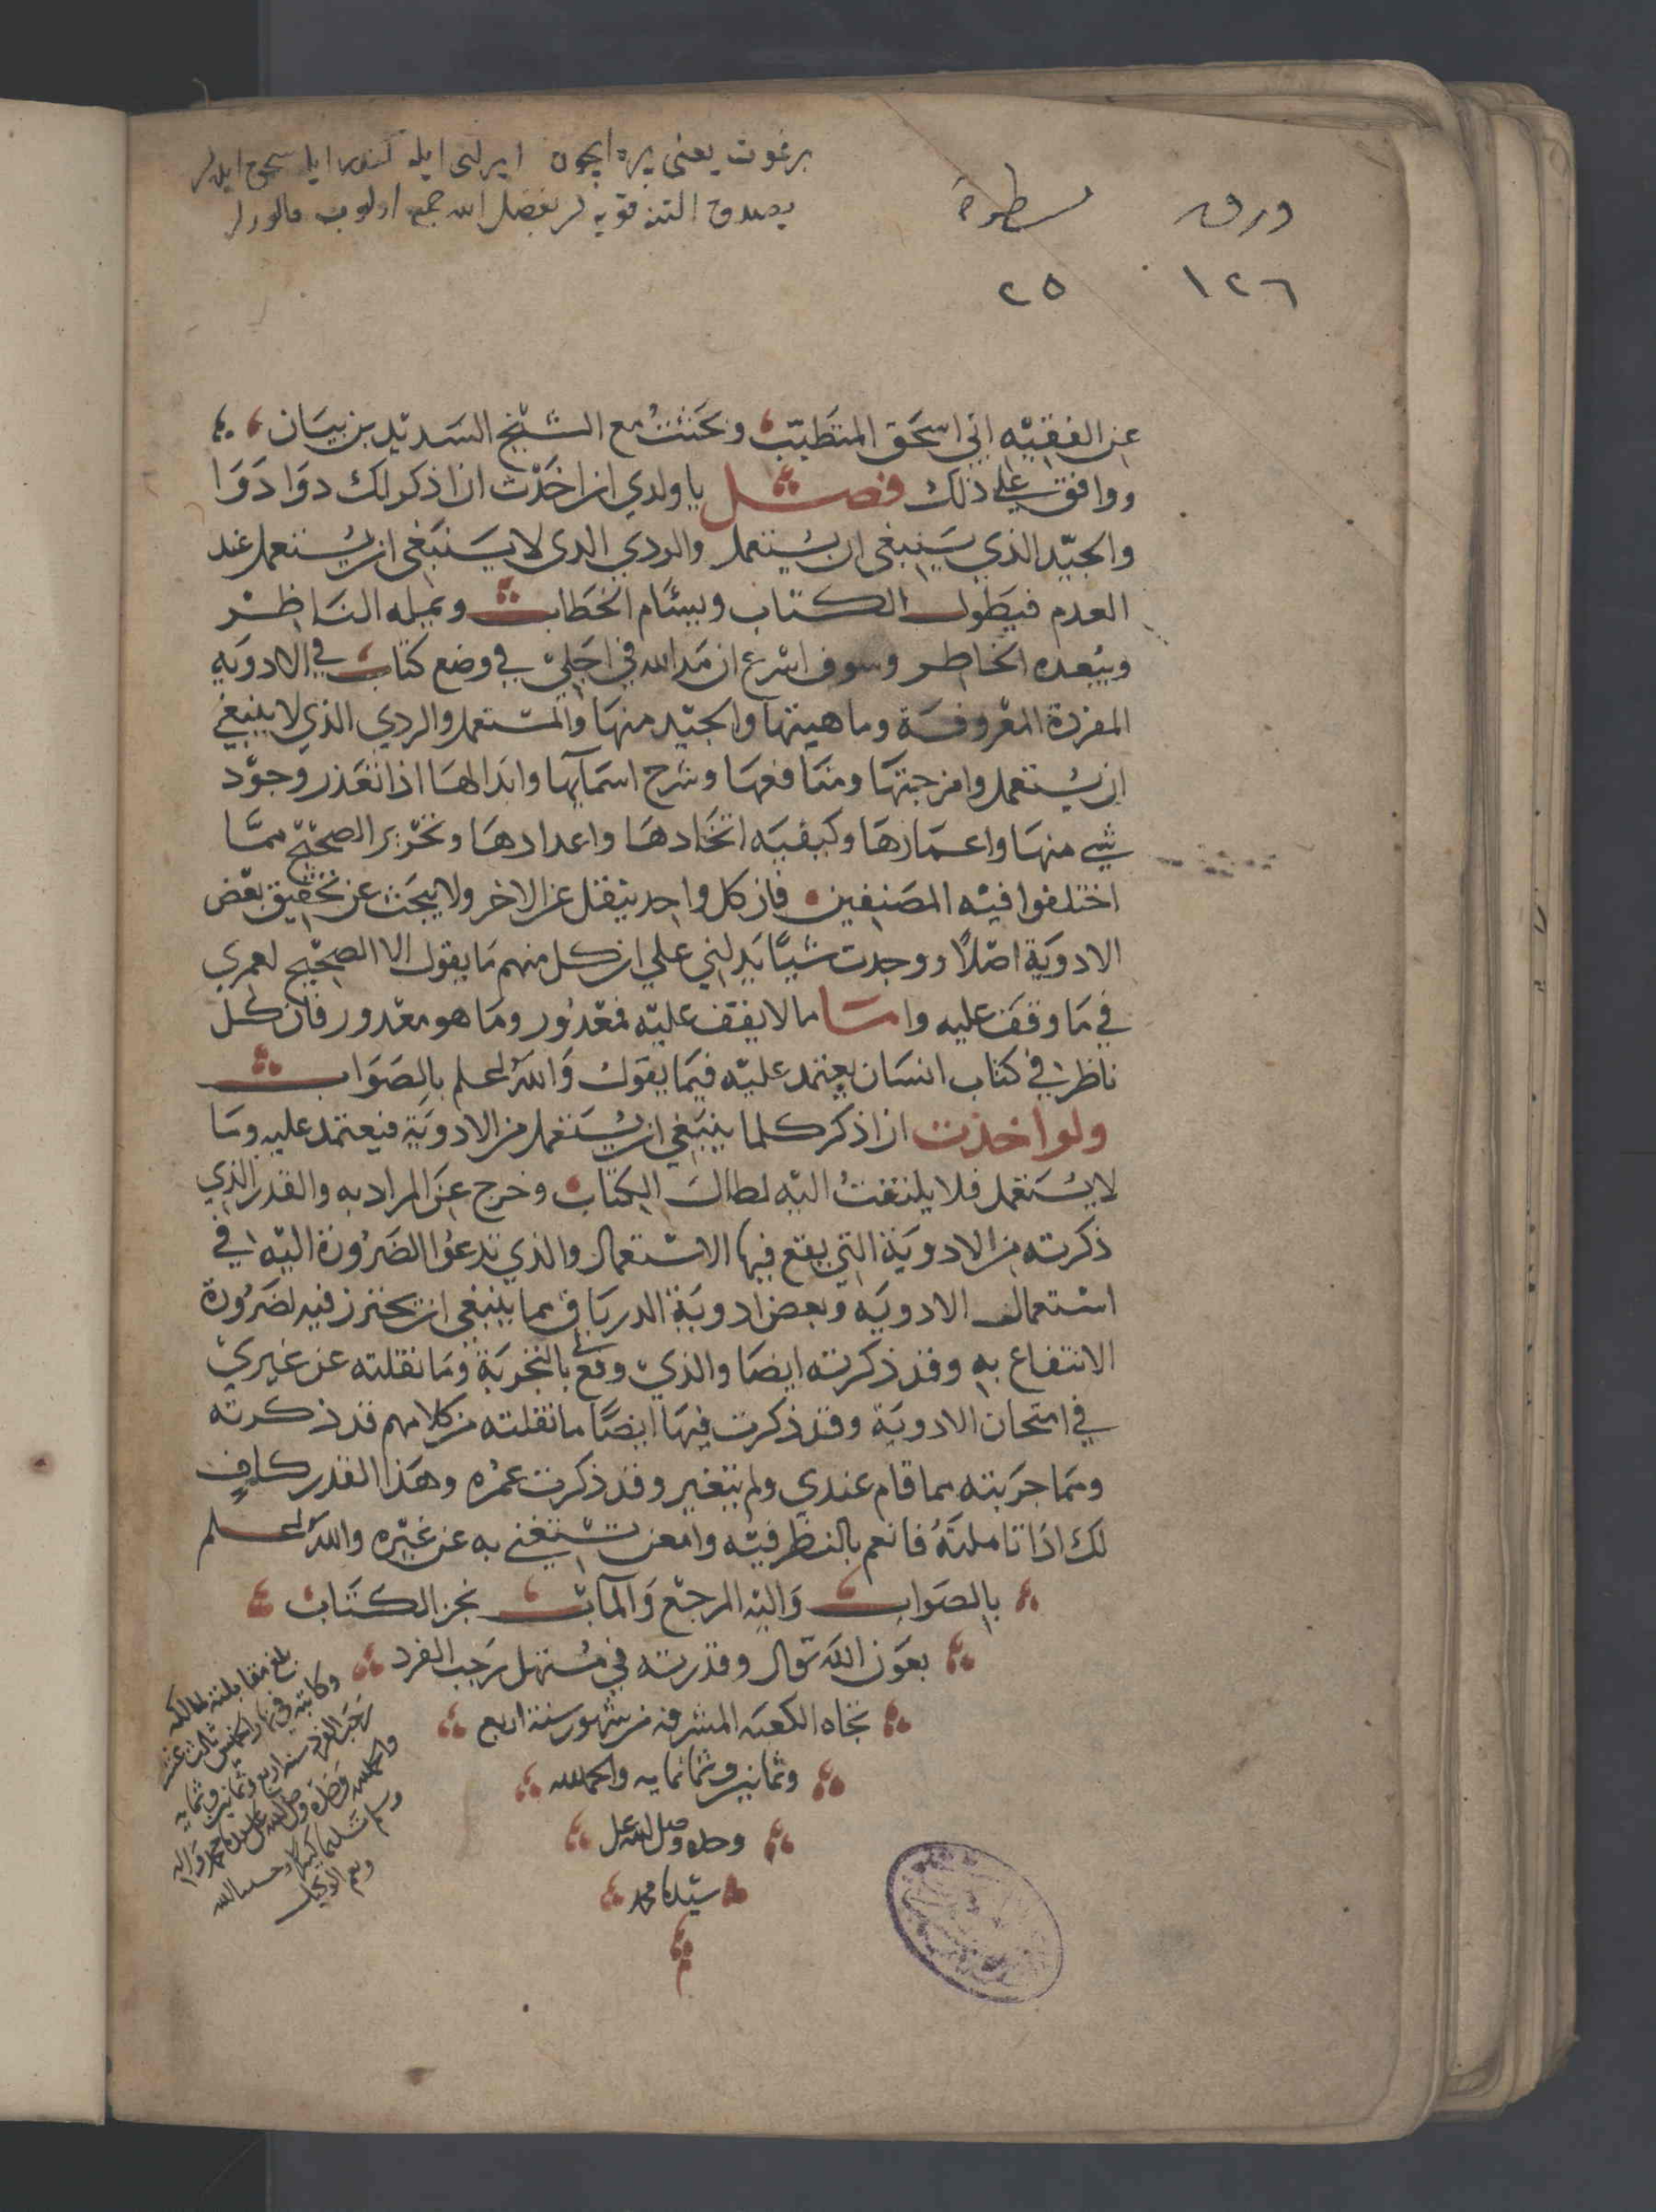 برغوت يعنى پره ايچون ايرلتى ايله
يصدق التنه قويه لر بفضل الله جمع اولوب
ورق سطور
١٢٦ ٢٥
عن الفقيه ابي اسحق المتطبب وبحثت مع الشيخ السديد بن بيان
ووافق على ذلك فصل يا ولدي ان اخذت ان اذكر لك دوا دوا
والجيد الذي ينبغي ان يستعمل والردي الذي لا ينبغي ان يستعمل عند
العدم فيطول الكتاب ويسئام الخطاب ويمله الناظر
ويبعده الخاطر وسوف اشرع ان مد الله في اجلي في وضع كتاب في الادويه
المفردة المعروفة وماهيتها والجيد منها والمستعمل والردي الذي لا ينبغي
ان يستعمل وامزجتها ومنافعها وشرح اسمآيها وابدالها اذا تعذر وجود
شي منها واعمارها وكيفيه اتخادها واعدادها وتحرير الصحيح مما
اختلفوا فيه المصنفين فان كل واحد ينقل عن الاخر ولا يبحث عن تحقيق بعض
الادوية اصلا ووجدت شيا يدلني علي ان كل منهم ما يقول الا الصحيح لعمري
في ما وقف عليه واما ما لا يقف عليه فمعذور وما هو معذور فان كل
ناظر في كتاب انسان يعتمد عليه فيما يقول والله اعلم بالصواب
ولو اخذت ان اذكر كلما ينبغي ان يستعمل من الادوية فيعتمد عليه وما
لا يستعمل فلا يلتفت اليه لطال الكتاب وخرج عن المراد به والقدر الذي
ذكرته من الادوية التي يقع فيها الاستعمال والذي تدعوا الضرورة اليه في
استعمال الادويه وبعض ادوية الدرياق مما ينبغي ان يحترز فيه لضرورة
الانتفاع به وقد ذكرته ايضا والذي وقع بالتجربة وما نقلته عن غيري
في امتحان الادوية وقد ذكرت فيها ايضا ما نقلته من كلامهم قد ذكرته
ومما جربته مما قام عندي ولم يتغير وقد ذكرت عمره وهذا القدر كاف
لك اذا تاملته فانعم بالنظر فيه وامعن تستغني به عن غيره والله اعلم
بالصواب واليه المرجع والمآب نجز الكتاب
بعون الله تعالى وقدرته في مستهل رجب الفرد
تجاه الكعبه المشرفه من شهور سنة اربع
وثمانين وثمانمايه والحمد لله
وحده وصلى الله على
سيدنا محمد
بلغ مقابلته لمالكه
وكاتبه في نهار الخميس ثالث عشر
رجب الفرد سنة اربع وثمانين وثمانمايه
والحمد لله وحده وصلى الله على سيدنا محمد واله
وسلم تسليما كثيرا وحسبنا الله
ونعم الوكيل